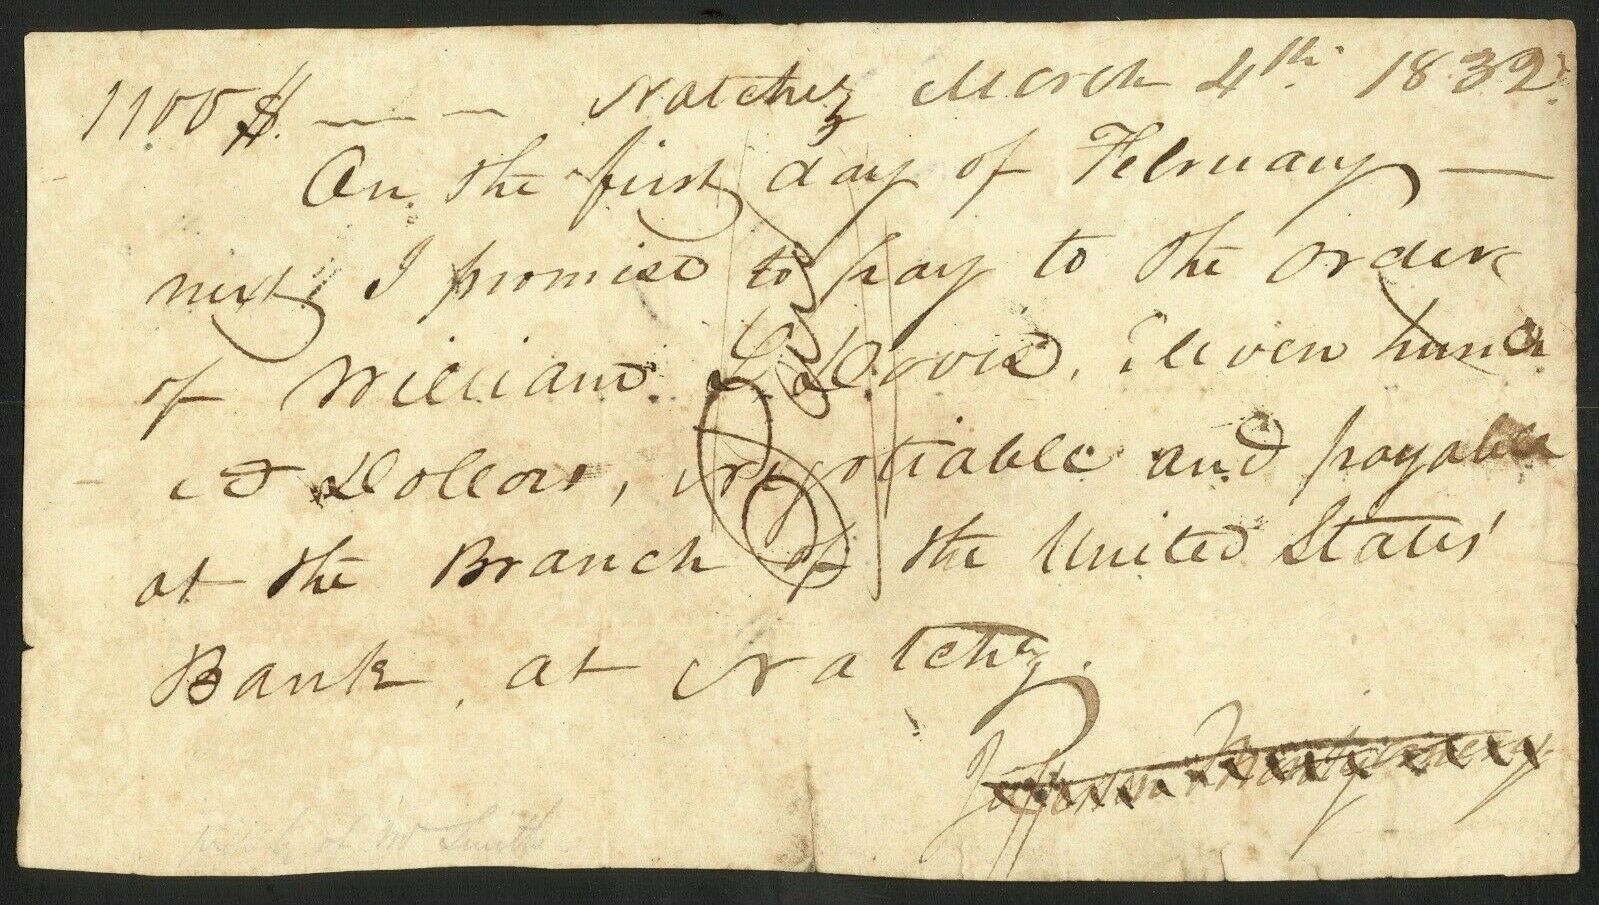 1100$. — — Natchez March 4th. 1832.
On the first day of February —
next, I promise to pay to the order
of William L. Davis, Eleven hund
ed Dollars, negotiable and payable
at the Branch of the United States'
Bank, at Natchez.
Jefferson Montgomery
of Mr Smith